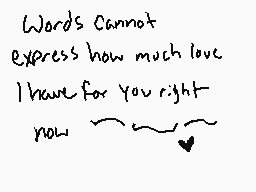 Words cannot
express how much love
I have for you right
now